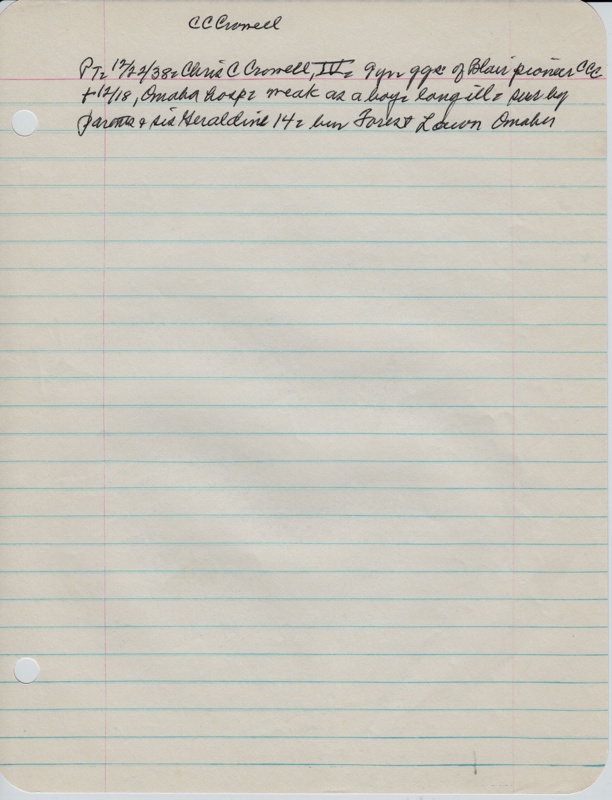 C C Crowell
PT: 12/22/38: Chris C Crowell, IV: 9 yr ggs: of Blair pioneer CCC
+ 12/18, Omaha hosp: weak as a boy: long ill: surv by
parents & sis Geraldine 14: bur Forest Lawn Omaha